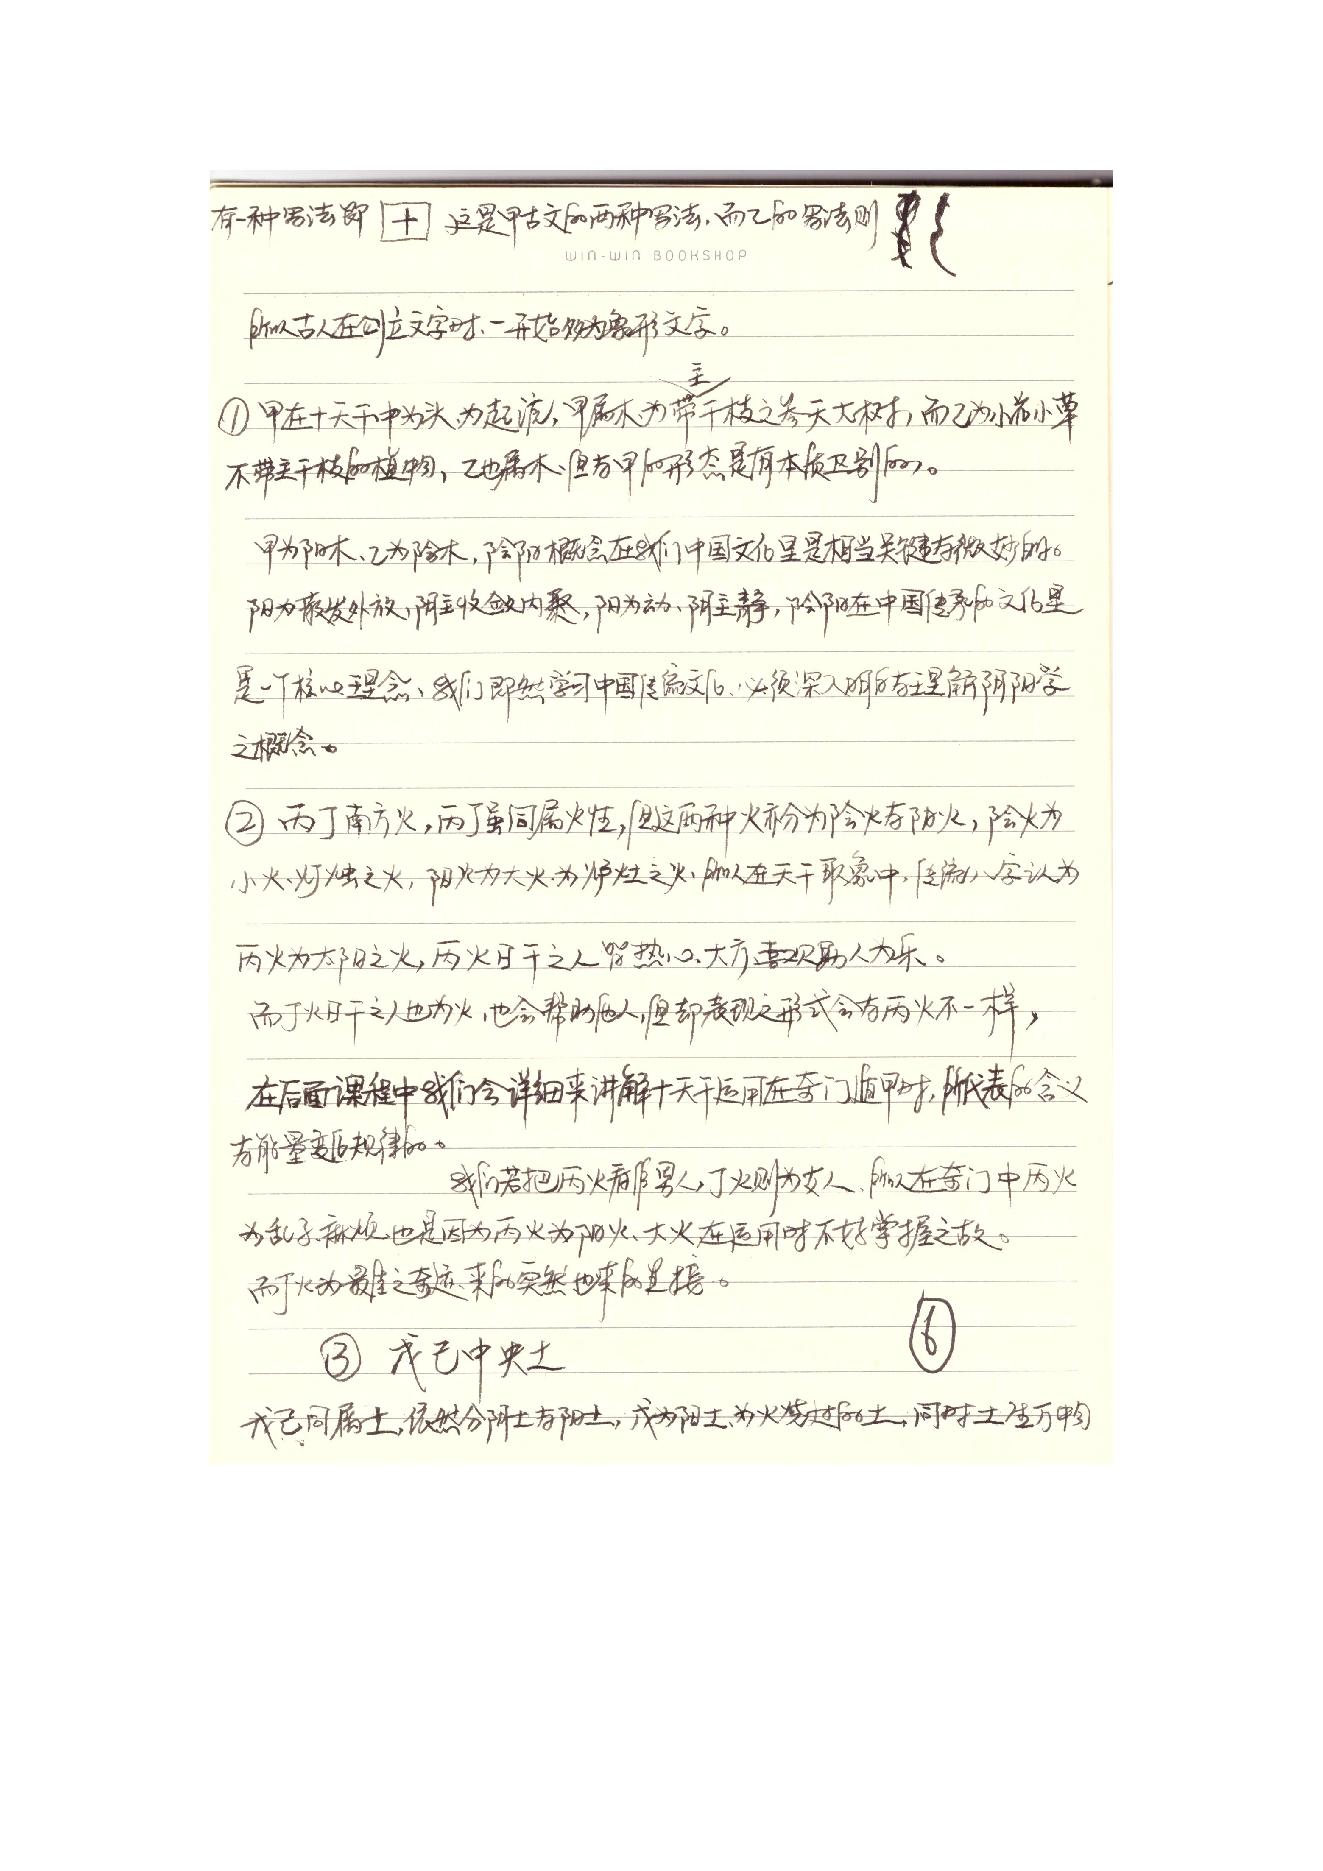 有一种写法即 田 这是甲古文的两种写法，而乙的写法则
WIN-WIN BOOKSHOP
所以古人在创立文字时、一开始多为象形文字。
主
① 甲在十天干中为头、为起源，甲属木、为带干枝之参天大树，而乙为小花小草
不带主干枝的植物，乙也属木、但与甲的形态是有本质区别的。
甲为阳木、乙为阴木，阴阳概念在我们中国文化里是相当关键与微妙的。
阳为散发外放，阴主收敛内聚，阳为动、阴主静，阴阳在中国传承的文化里
是一个核心理念、我们即然学习中国传统文化、必须深入明白与理解阴阳学
之概念。
② 丙丁南方火，丙丁虽同属火性，但这两种火亦分为阴火与阳火，阴火为
小火、灯烛之火，阳火为大火、为炉灶之火、所以在天干取象中，传统八字认为
丙火为太阳之火，丙火日干之人皆热心、大方喜欢助人为乐。
而丁火日干之人也为火，也会帮助他人，但却表现之形式会与丙火不一样，
在后面课程中我们会详细来讲解十天干运用在奇门遁甲时，所代表的含义
与能量变化规律的。
我们若把丙火看作男人，丁火则为女人、所以在奇门中丙火
为乱子、麻烦、也是因为丙火为阳火、大火在运用时不好掌握之故。
而丁火为最佳之奇迹、来的突然也来的直接。
⑥
③ 戊己中央土
戊己同属土，依然分阴土与阳土，戊为阳土、为火烧过的土，同时土生万物